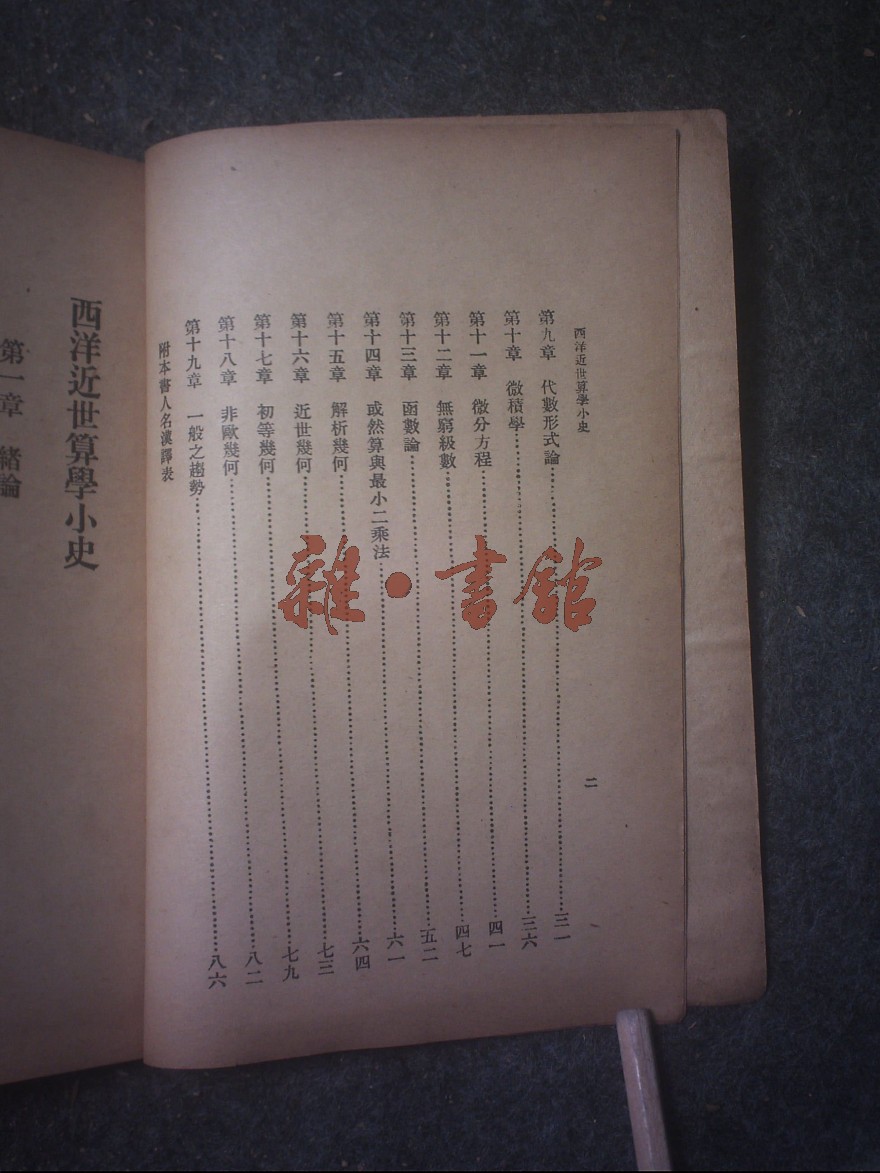 西洋近世算學小史
二
第九章 代數形式論……三一
第十章 微積學……三六
第十一章 微分方程……四一
第十二章 無窮級數……四七
第十三章 函數論……五二
第十四章 或然算與最小二乘法……六一
第十五章 解析幾何……六四
第十六章 近世幾何……七三
第十七章 初等幾何……七九
第十八章 非歐幾何……八二
第十九章 一般之趨勢……八六
附本書人名漢譯表
西洋近世算學小史
第一章 緒論
雜·書館